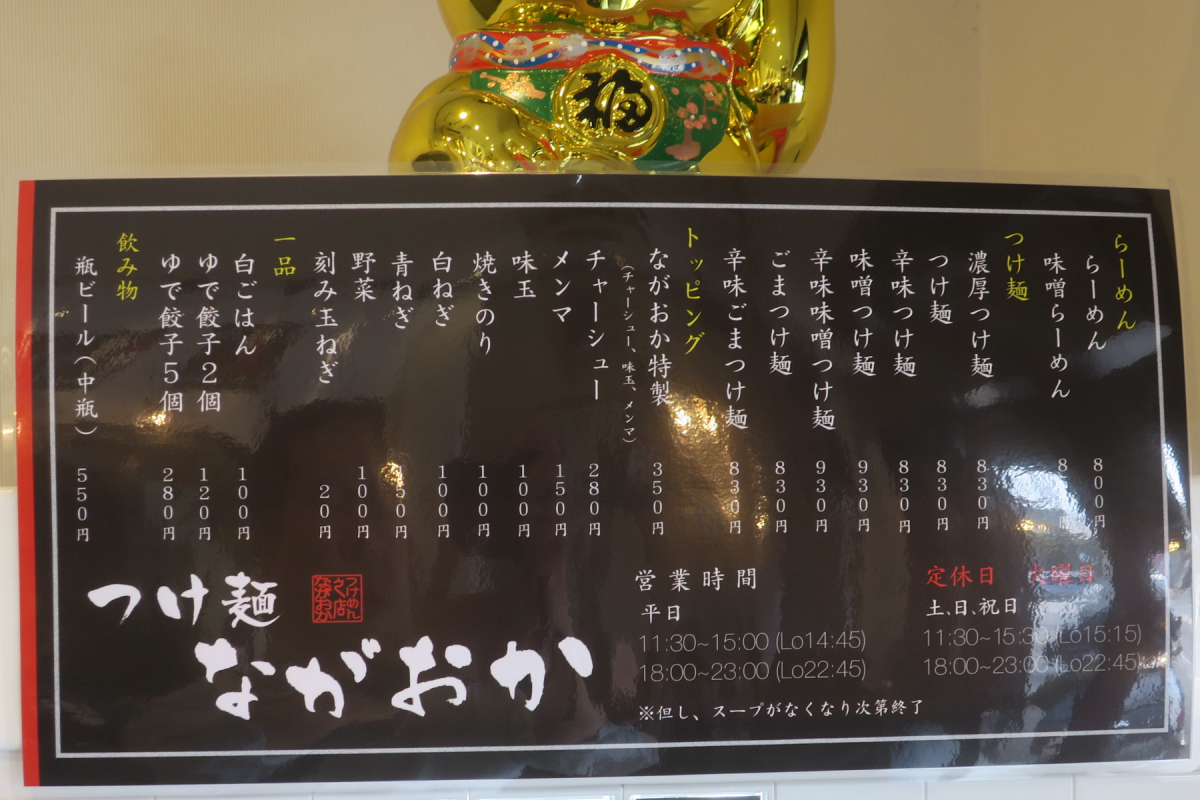 福
らーめん
らーめん 800円
味噌らーめん
つけ麺
濃厚つけ麺 830円
つけ麺 830円
辛味つけ麺 830円
味噌つけ麺 930円
辛味味噌つけ麺 930円
ごまつけ麺 830円
辛味ごまつけ麺 830円
トッピング
ながおか特製 350円
（チャーシュー、味玉、メンマ）
チャーシュー 280円
メンマ 150円
味玉 100円
焼きのり 100円
白ねぎ 100円
青ねぎ
野菜 100円
刻み玉ねぎ 20円
一品
白ごはん 100円
ゆで餃子2個 120円
ゆで餃子5個 280円
飲み物
瓶ビール（中瓶） 550円
つけ麺
ながおか
営業時間
平日
11:30~15:00 (Lo14:45)
18:00~23:00 (Lo22:45)
定休日 火曜日
土、日、祝日
11:30~15:30 (Lo15:15)
18:00~23:00 (Lo22:45)
※但し、スープがなくなり次第終了